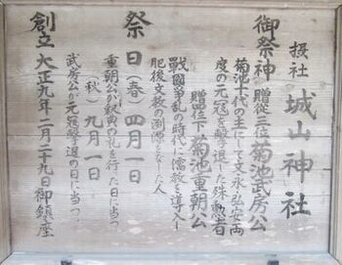 摂社 城山神社
御祭神 贈従三位菊池武房公
菊池十代の主にして文永弘安両
度の元寇を撃退した殊勲者
贈従位下菊池重朝公
戦國争乱の時代に儒教を導入し
肥後文教の淵源をなした人
祭日(春)四月一日
重朝公が釈奠の礼を行た日に当つ
(秋)九月一日
武房公が元寇撃退の日に当つ
創立 大正九年二月二十九日御鎮座